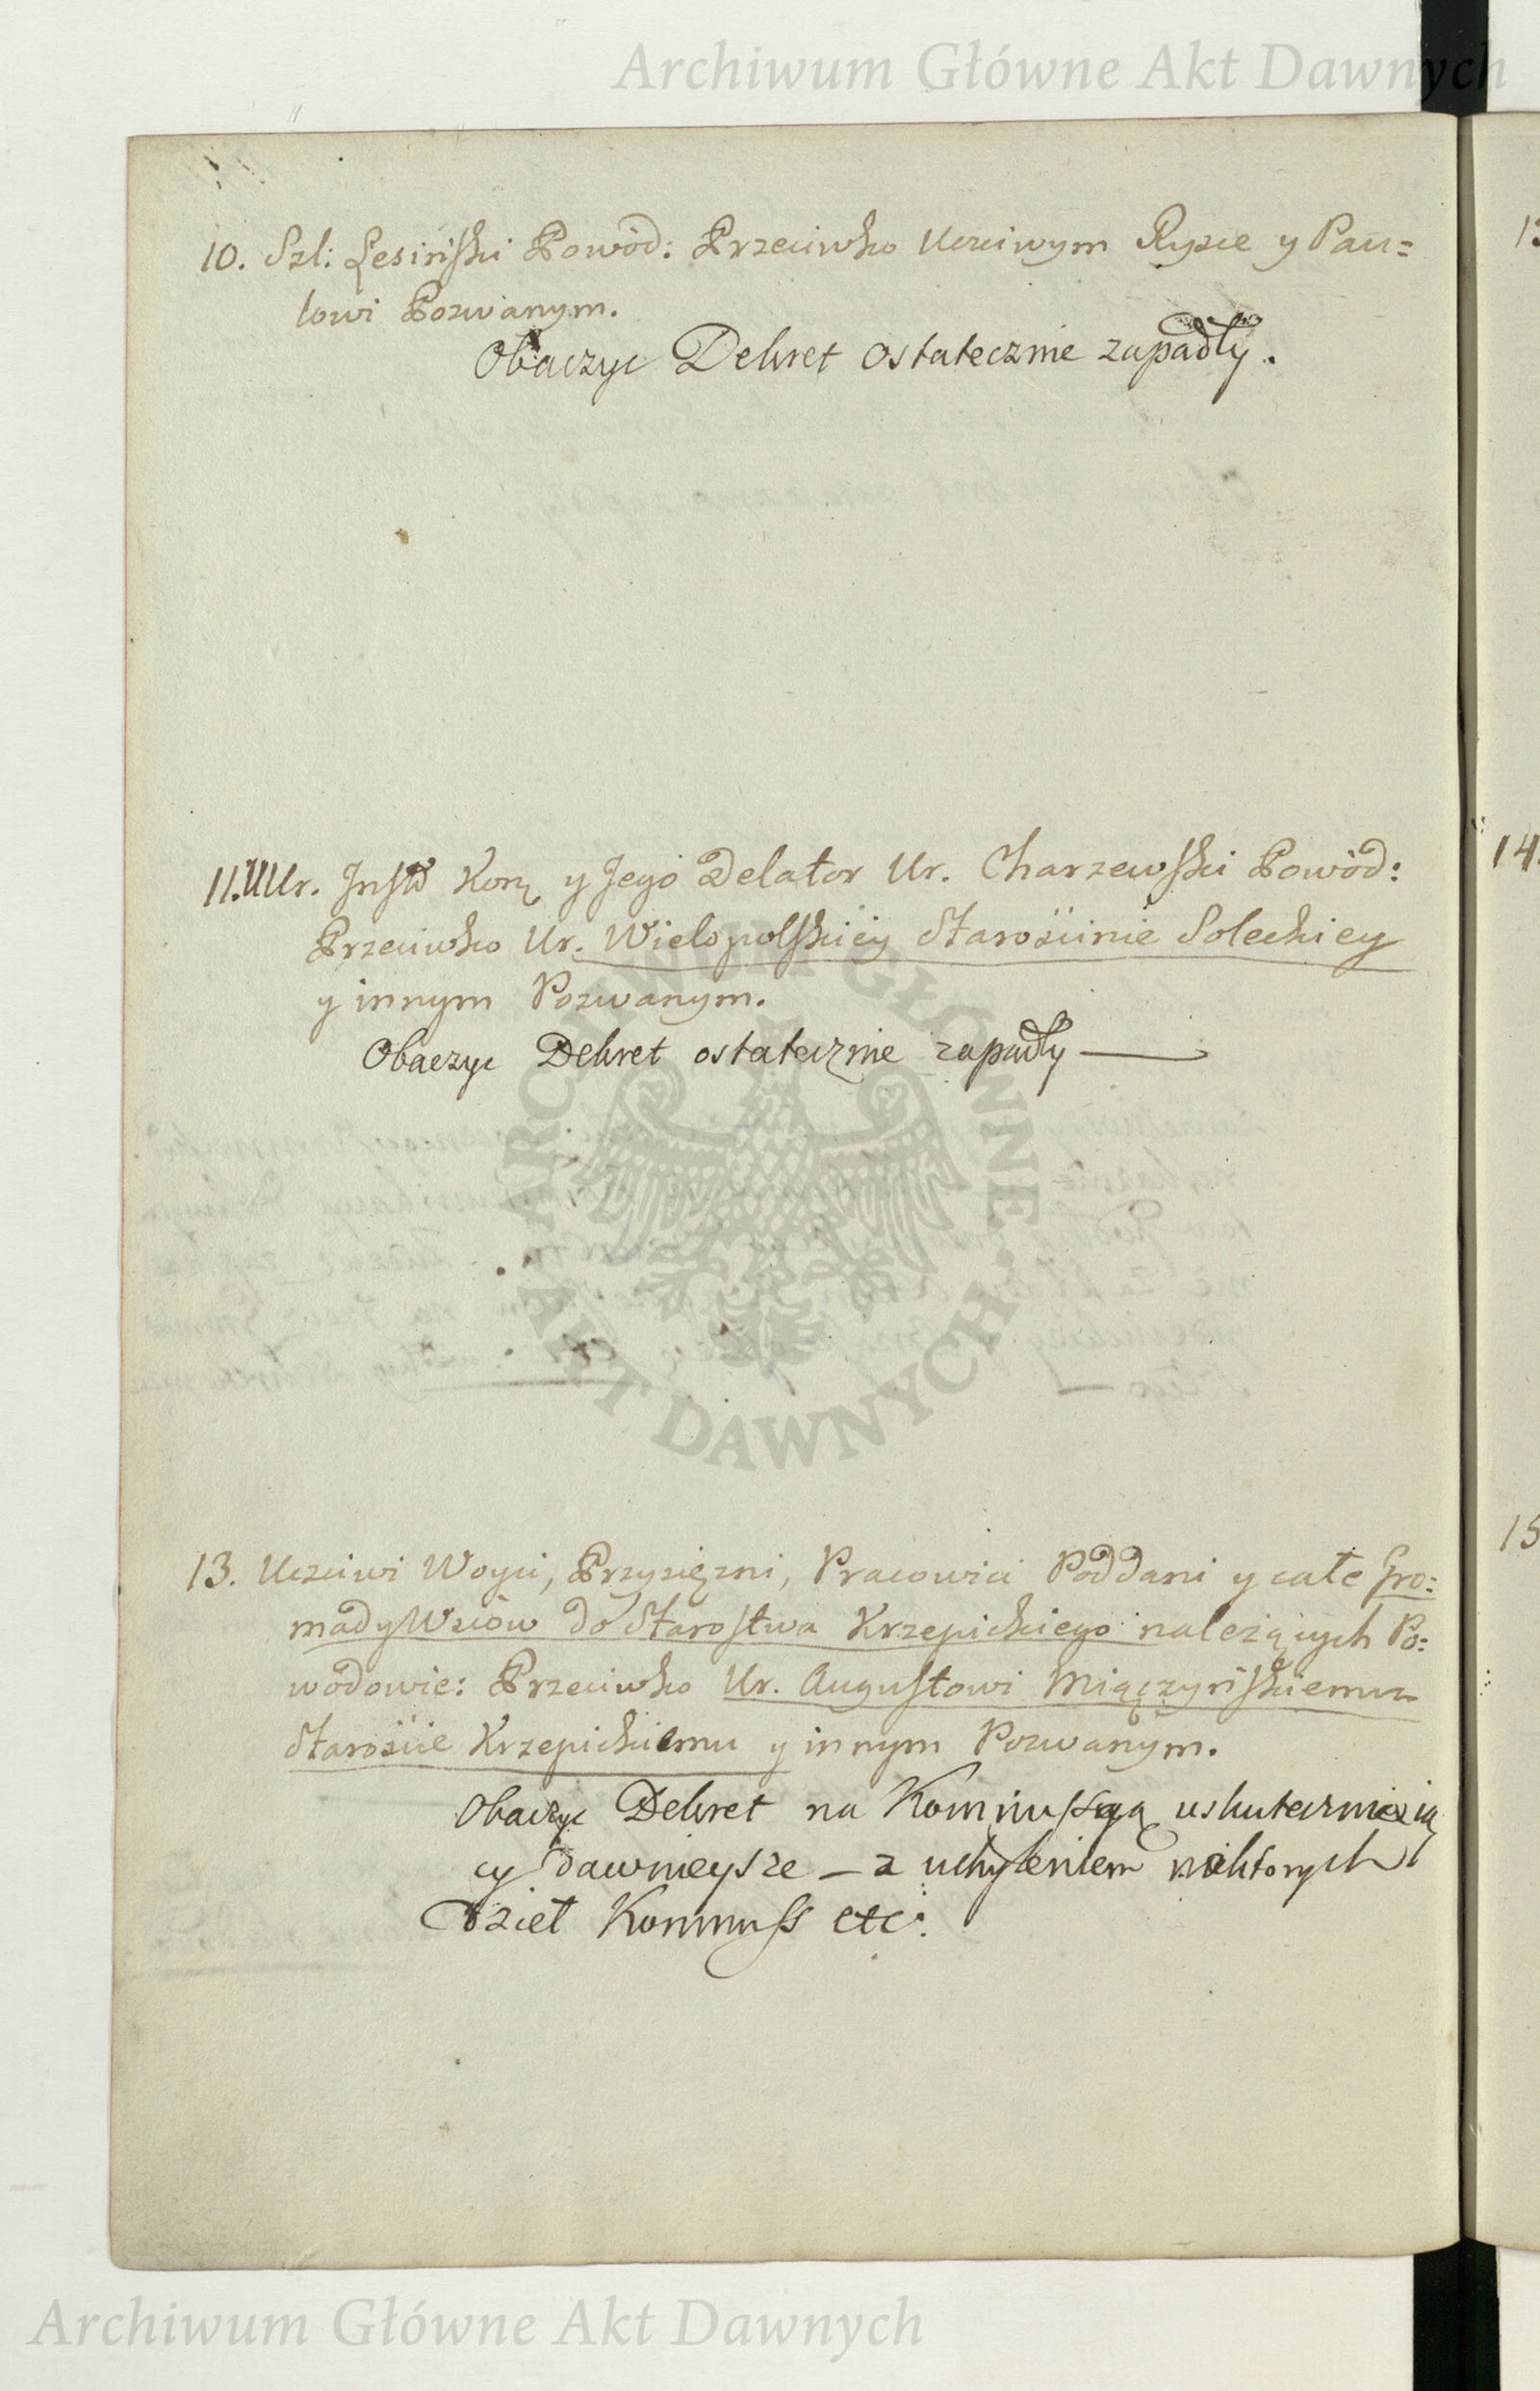 Archiwum Główne Akt Dawnych
10. Szl: Lesiński Powód: Przeciwko Uczciwym Rysce y Paw=
łowi Pozwanym.
Obaczyc Dekret ostatecznie zapadły.
11. UUr. Inst Kor y Jego Delator Ur. Charzewski Powód:
Przeciwko Ur. Wielopolskiey Starościnie Soleckiey
y innym Pozwanym.
Obaczyc Dekret ostatecznie zapadły
13. Uczciwi Woyci, Przysiężni, Pracowici Poddani y całe Gro=
mady Wsiów do Starostwa Krzepickiego należących Po=
wodowie: Przeciwko Ur. Augustowi Miączyńskiemu
Starościie Krzepickiemu y innym Pozwanym.
Obaczyc Dekret na Kommissyą uskutecznieią
cy dawnieysze – z uchyleniem niektorych
dzieł Kommiss etc:
14
15
ARCHIWUM GŁÓWNE AKT DAWNYCH
Archiwum Główne Akt Dawnych